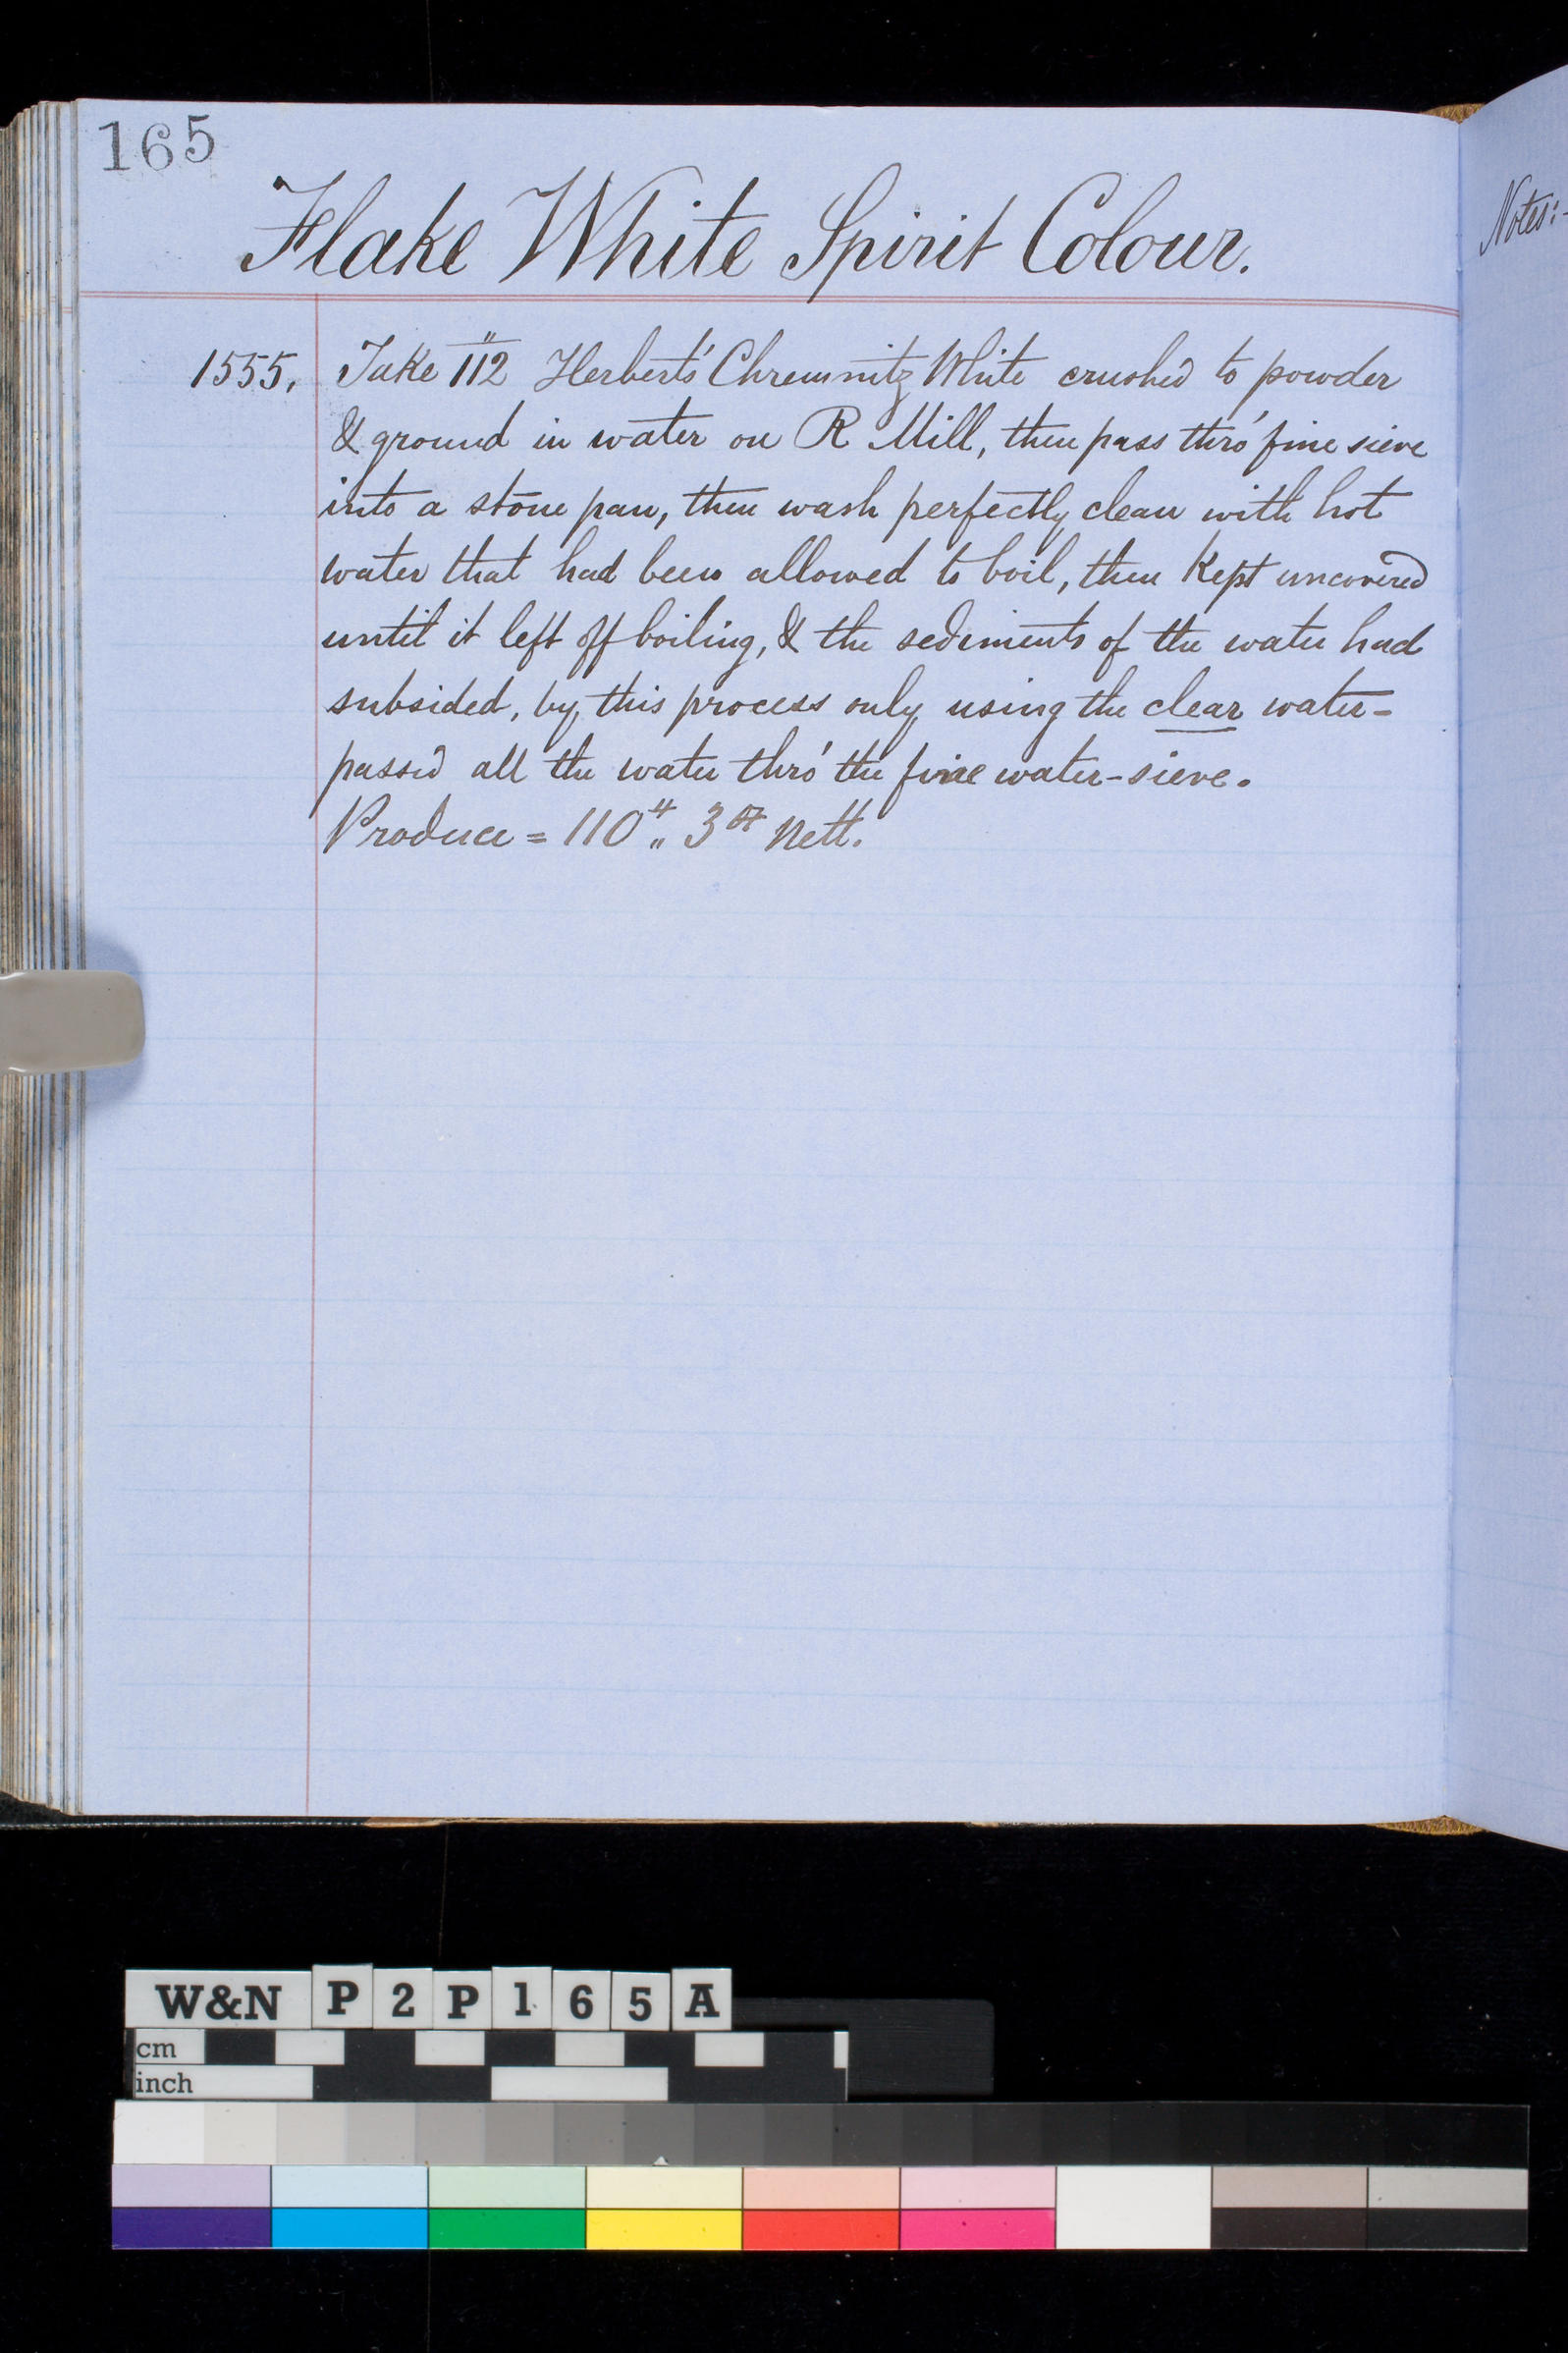 165
Flake White Spirit Colour.
Notes:-
1555. Take 112 Herberts' Chremnitz White crushed to powder
& ground in water on R Mill, then pass thro' fine sieve
into a stone pan, then wash perfectly clean with hot
water that had been allowed to boil, then kept uncovered
until it left off boiling, & the sediments of the water had
subsided, by this process only using the clear water-
passed all the water thro' the fine water-sieve.
Produce = 110 " 3 oz Nett.
W&N P2P165A
cm
inch